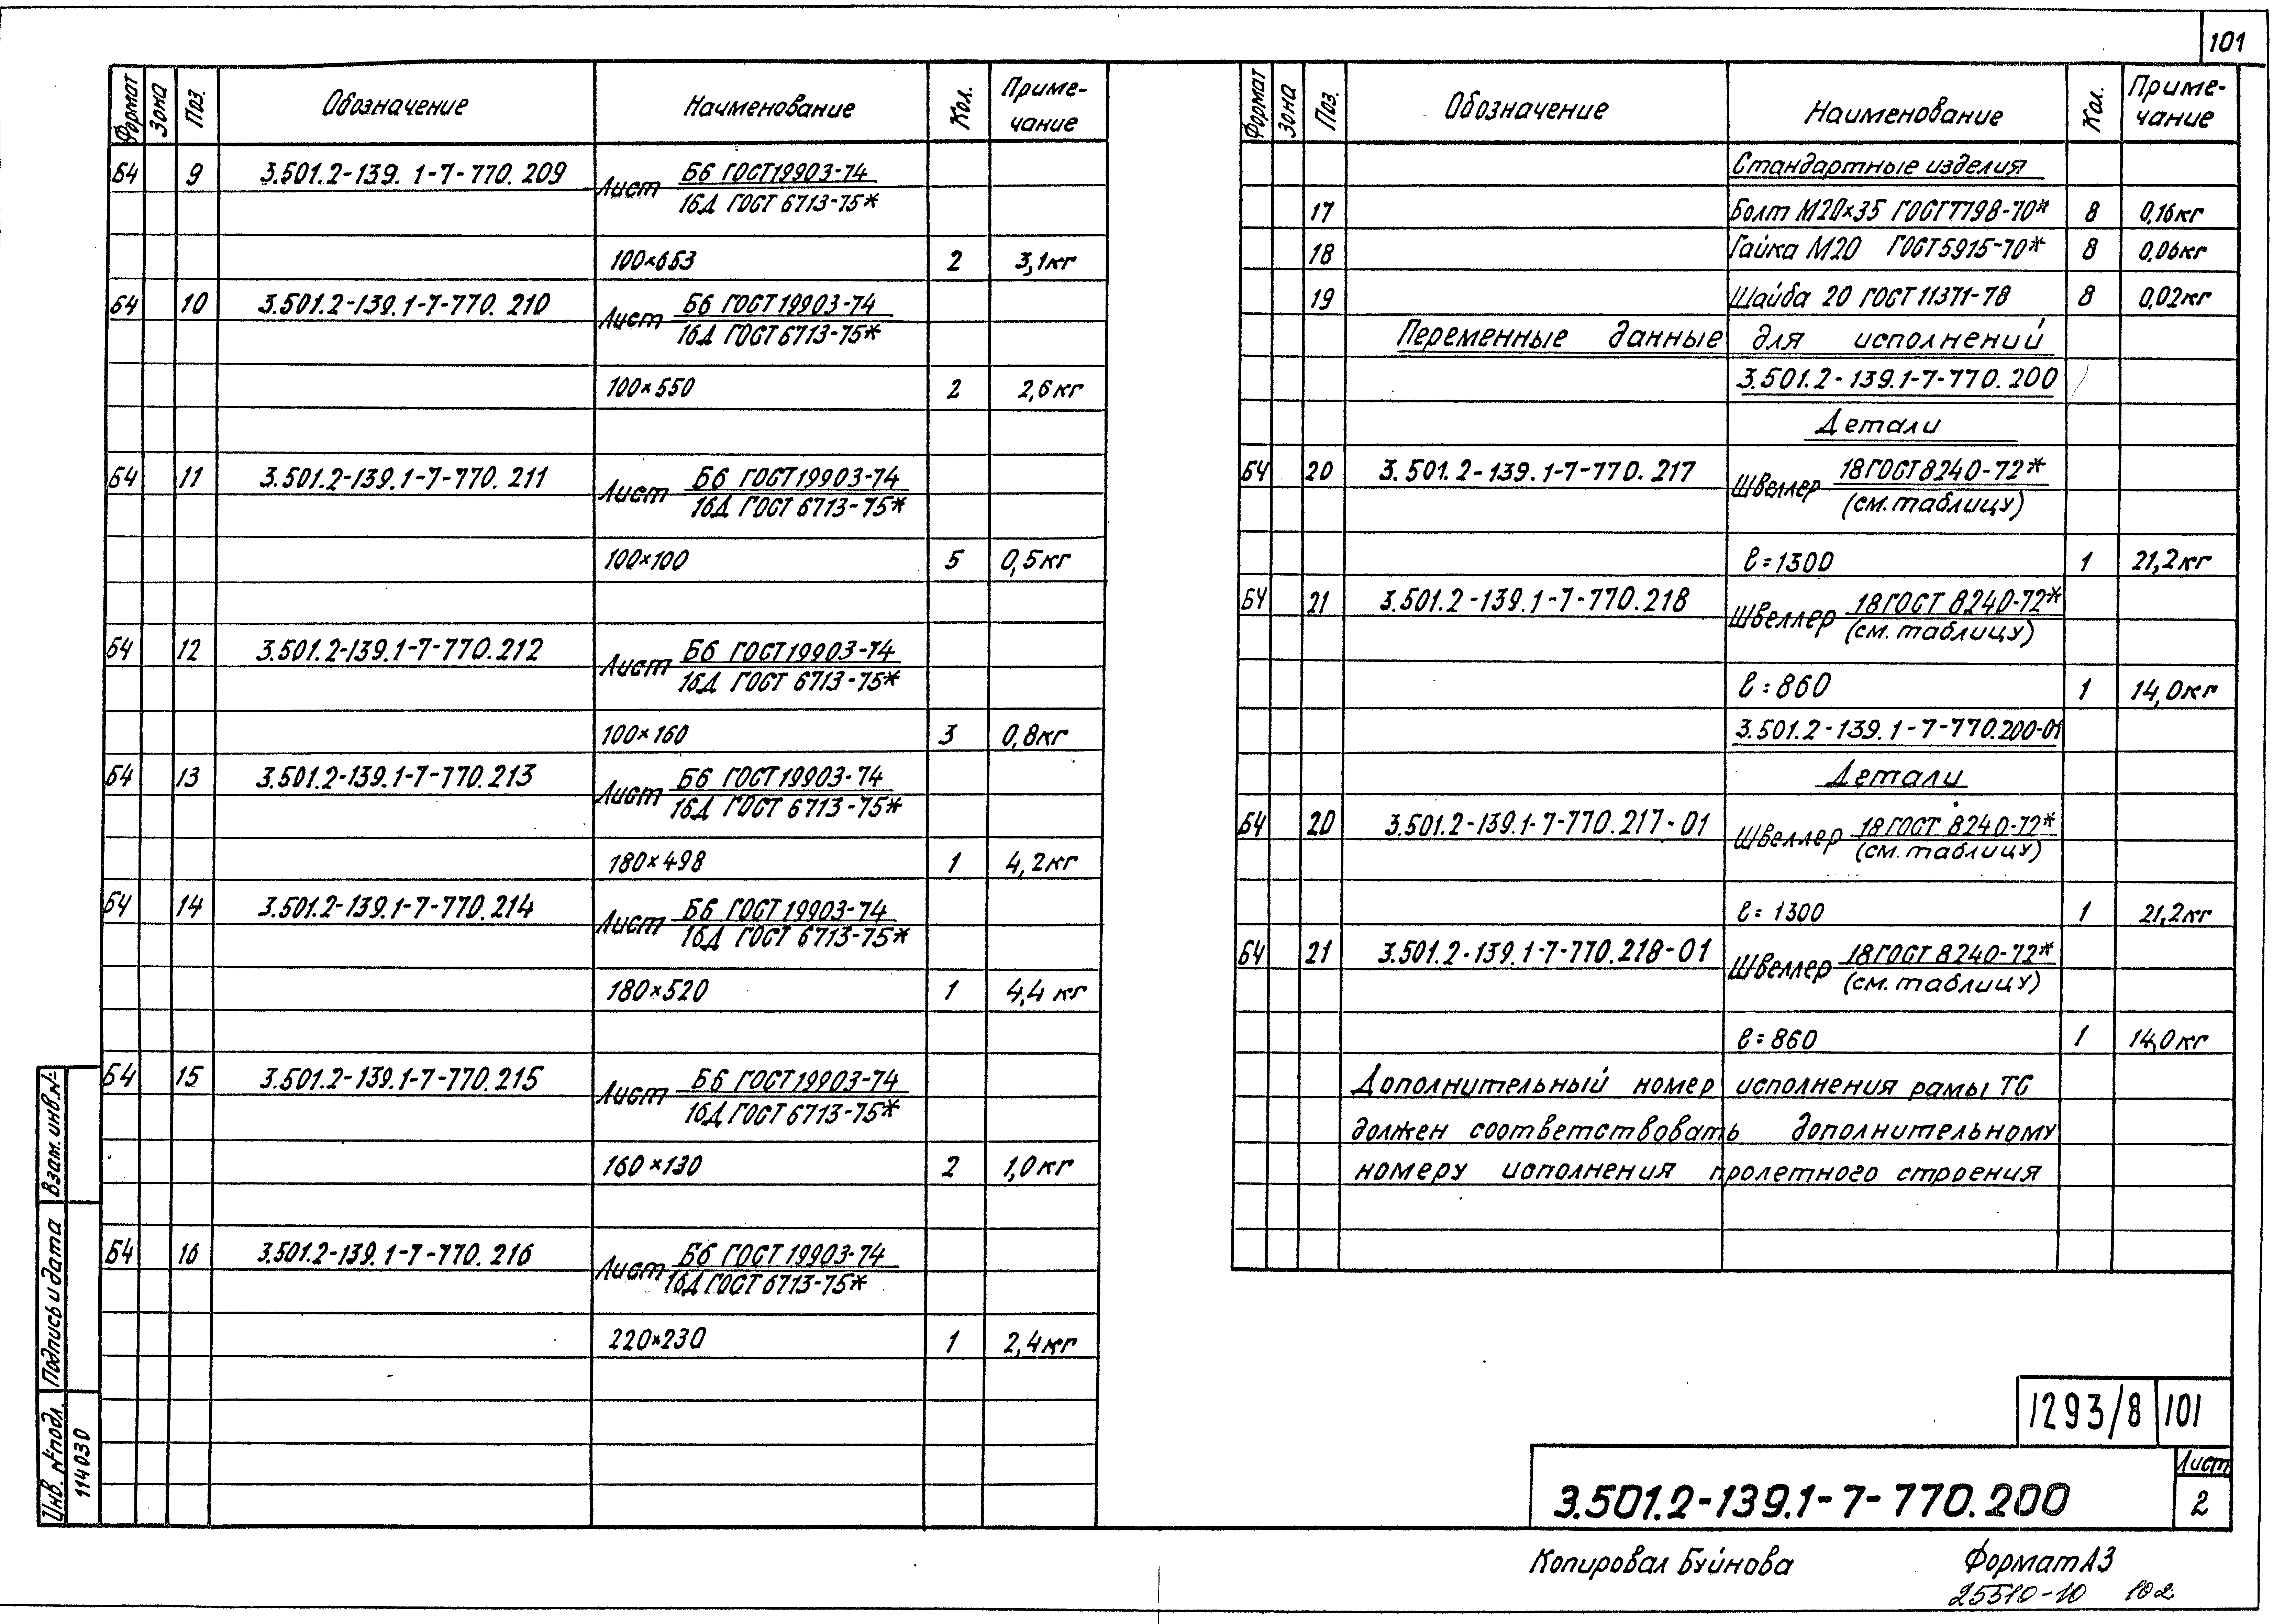 101
Формат Зона Поз. Обозначение Наименование Кол. Приме-
чание
Б4 9 3.501.2-139.1-7-770.209 Лист Б6 ГОСТ 19903-74
16Д ГОСТ 6713-75*
100×653 2 3,1кг
Б4 10 3.501.2-139.1-7-770.210 Лист Б6 ГОСТ 19903-74
16Д ГОСТ 6713-75*
100×550 2 2,6кг
Б4 11 3.501.2-139.1-7-770.211 Лист Б6 ГОСТ 19903-74
16Д ГОСТ 6713-75*
100×100 5 0,5кг
Б4 12 3.501.2-139.1-7-770.212 Лист Б6 ГОСТ 19903-74
16Д ГОСТ 6713-75*
100×160 3 0,8кг
Б4 13 3.501.2-139.1-7-770.213 Лист Б6 ГОСТ 19903-74
16Д ГОСТ 6713-75*
180×498 1 4,2кг
Б4 14 3.501.2-139.1-7-770.214 Лист Б6 ГОСТ 19903-74
16Д ГОСТ 6713-75*
180×520 1 4,4 кг
Б4 15 3.501.2-139.1-7-770.215 Лист Б6 ГОСТ 19903-74
16Д ГОСТ 6713-75*
160×130 2 1,0кг
Б4 16 3.501.2-139.1-7-770.216 Лист Б6 ГОСТ 19903-74
16Д ГОСТ 6713-75*
220×230 1 2,4кг
Формат Зона Поз. Обозначение Наименование Кол. Приме-
чание
Стандартные изделия
17 Болт М20×35 ГОСТ7798-70* 8 0,16кг
18 Гайка М20 ГОСТ5915-70* 8 0,06кг
19 Шайба 20 ГОСТ 11371-78 8 0,02кг
Переменные данные для исполнений
3.501.2-139.1-7-770.200
Детали
Б4 20 3.501.2-139.1-7-770.217 Швеллер 18 ГОСТ 8240-72*
(см. таблицу)
ℓ=1300 1 21,2кг
Б4 21 3.501.2-139.1-7-770.218 Швеллер 18 ГОСТ 8240-72*
(см. таблицу)
ℓ=860 1 14,0кг
3.501.2-139.1-7-770.200-01
Детали
Б4 20 3.501.2-139.1-7-770.217-01 Швеллер 18 ГОСТ 8240-72*
(см. таблицу)
ℓ=1300 1 21,2кг
Б4 21 3.501.2-139.1-7-770.218-01 Швеллер 18 ГОСТ 8240-72*
(см. таблицу)
ℓ=860 1 14,0кг
Дополнительный номер исполнения рамы ТС
должен соответствовать дополнительному
номеру исполнения пролетного строения
Инв. №подл. Подпись и дата Взам. инв.№
114030
1293/8 101
3.501.2-139.1-7-770.200 Лист
2
Копировал Буйнова Формат А3
25510-10 102